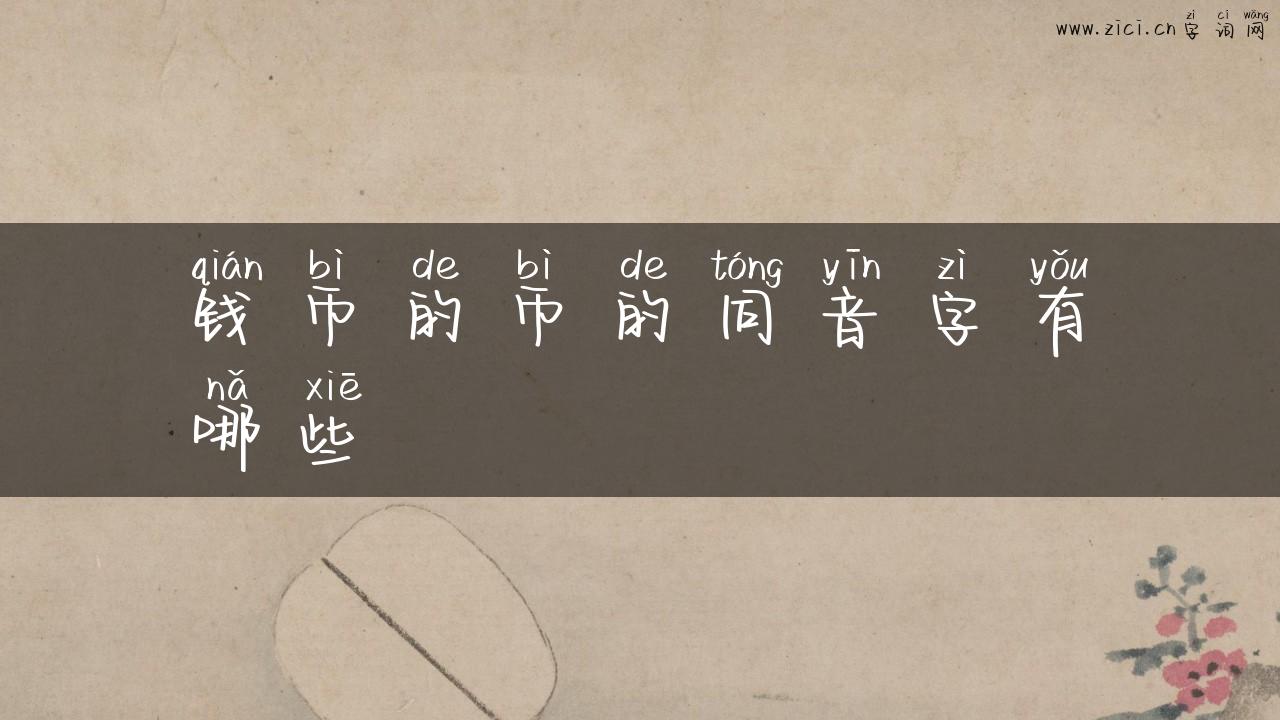 zì cí wǎng
www.zici.cn 字词网
qián bì de bì de tóng yīn zì yǒu
钱币的币的同音字有
nǎ xiē
哪些